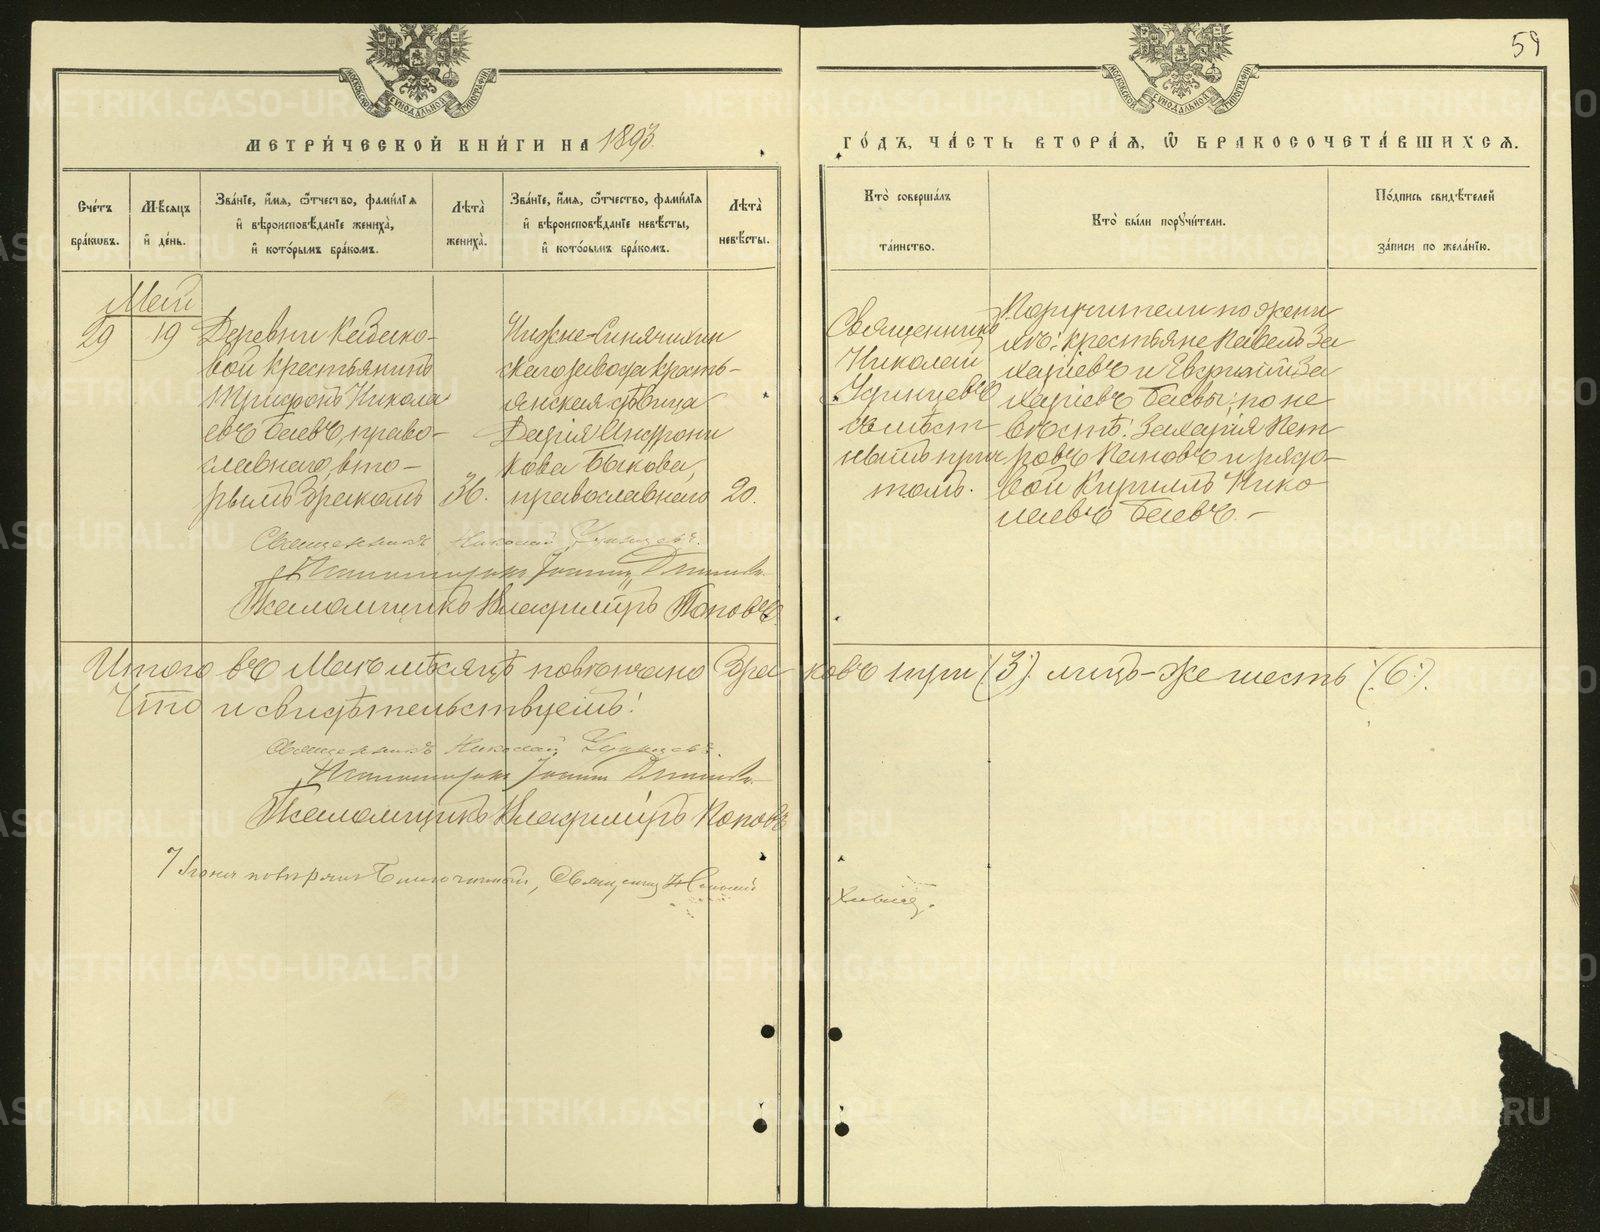 МОСКОВСКОЙ СѴНОДАЛЬНОЙ ТИПОГРАФІИ
МОСКОВСКОЙ СѴНОДАЛЬНОЙ ТИПОГРАФІИ
59
МЕТРИ́ЧЕСКОЙ КНИ́ГИ НА 1893
ГО́ДЪ, ЧА́СТЬ ВТОРА́Я, Ѿ БРАКОСОЧЕТА́ВШИХСЯ.
Сче́тъ бра́кѡвъ.
Мѣ́сяцъ и҆ де́нь.
Зва́нїе, и҆́мя, ѻ҆́тчество, фами́лїя и҆ вѣроисповѣ́данїе жениха̀, и҆ кото́рымъ бра́комъ.
Лѣ́та жениха̀.
Зва́нїе, и҆́мя, ѻ҆́тчество, фами́лїя и҆ вѣроисповѣ́данїе невѣ́сты, и҆ кото́рымъ бра́комъ.
Лѣ́та невѣ́сты.
Кто̀ соверша́лъ та́инство.
Кто̀ бы́ли порꙋчи́тели.
По́дпись свидѣ́телей за́писи по жела́нїю.
Май
29
19
Деревни
вой крестьянинъ
Трифонъ Никола
евъ Баевъ, право-
славнаго, вто-
рымъ бракомъ
36.
Нижне-Синячихин
скаго завода кресть-
янская дѣвица
Дарія Андрони
кова Быкова,
православнаго
20.
Священникъ
Николай
Удинцевъ
съ мѣст
нымъ прич
томъ.
Поручители по жени
хѣ: крестьяне Павелъ За
харіевъ и Евфимій За
харіевъ Баевы; по не
вѣстѣ: Захарія Пет
ровъ Пановъ и рядо-
вой Кириллъ Нико
лаевъ Баевъ. –
Священникъ Николай Удинцевъ.
Псаломщикъ Владиміръ Поповъ.
Итого въ Маѣ мѣсяцѣ повѣнчано бра ковъ три (3): лицъ-же шесть (:6:).
Что и свидѣтельствуемъ:
Священникъ Николай Удинцевъ.
Псаломщикъ Владиміръ Поповъ
Благочинный, Священ. Николай
METRIKI.GASO-URAL.RU